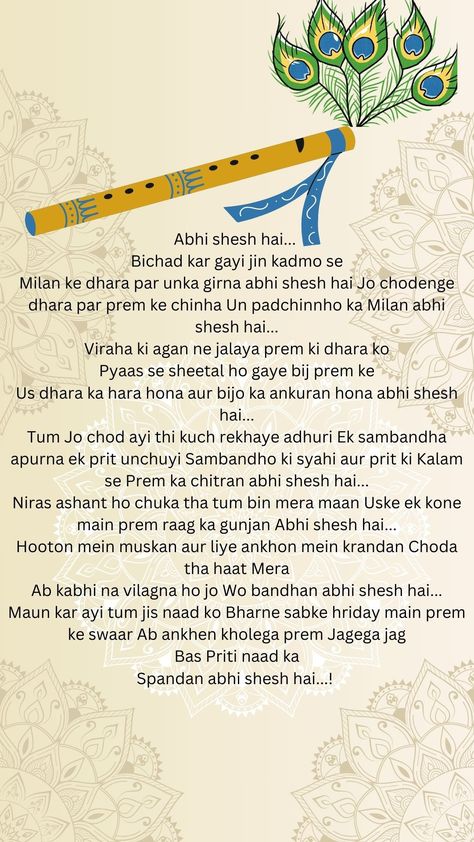 Abhi shesh hai...
Bichad kar gayi jin kadmo se
Milan ke dhara par unka girna abhi shesh hai Jo chodenge
dhara par prem ke chinha Un padchinnho ka Milan abhi
shesh hai...
Viraha ki agan ne jalaya prem ki dhara ko
Pyaas se sheetal ho gaye bij prem ke
Us dhara ka hara hona aur bijo ka ankuran hona abhi shesh
hai...
Tum Jo chod ayi thi kuch rekhaye adhuri Ek sambandha
apurna ek prit unchuyi Sambandho ki syahi aur prit ki Kalam
se Prem ka chitran abhi shesh hai...
Niras ashant ho chuka tha tum bin mera maan Uske ek kone
main prem raag ka gunjan Abhi shesh hai...
Hooton mein muskan aur liye ankhon mein krandan Choda
tha haat Mera
Ab kabhi na vilagna ho jo Wo bandhan abhi shesh hai...
Maun kar ayi tum jis naad ko Bharne sabke hriday main prem
ke swaar Ab ankhen kholega prem Jagega jag
Bas Priti naad ka
Spandan abhi shesh hai...!